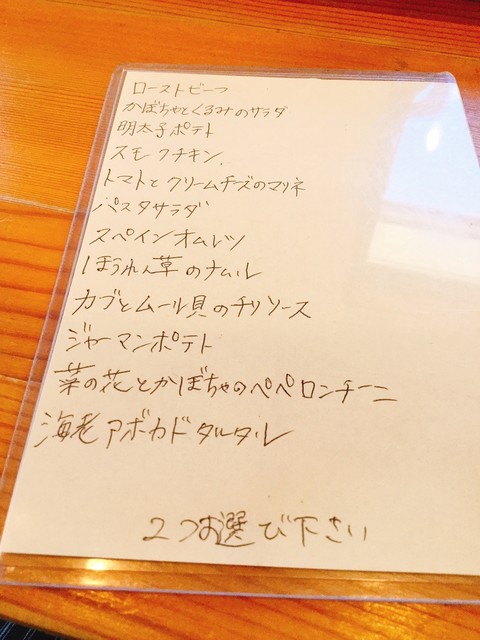 ローストビーフ
かぼちゃとくるみのサラダ
明太子ポテト
スモークチキン.
トマトとクリームチーズのマリネ
パスタサラダ
スペインオムレツ
ほうれん草のナムル
カブとムール貝のチリソース
ジャーマンポテト
菜の花とかぼちゃのペペロンチーニ
海老アボカドタルタル
2つお選び下さい